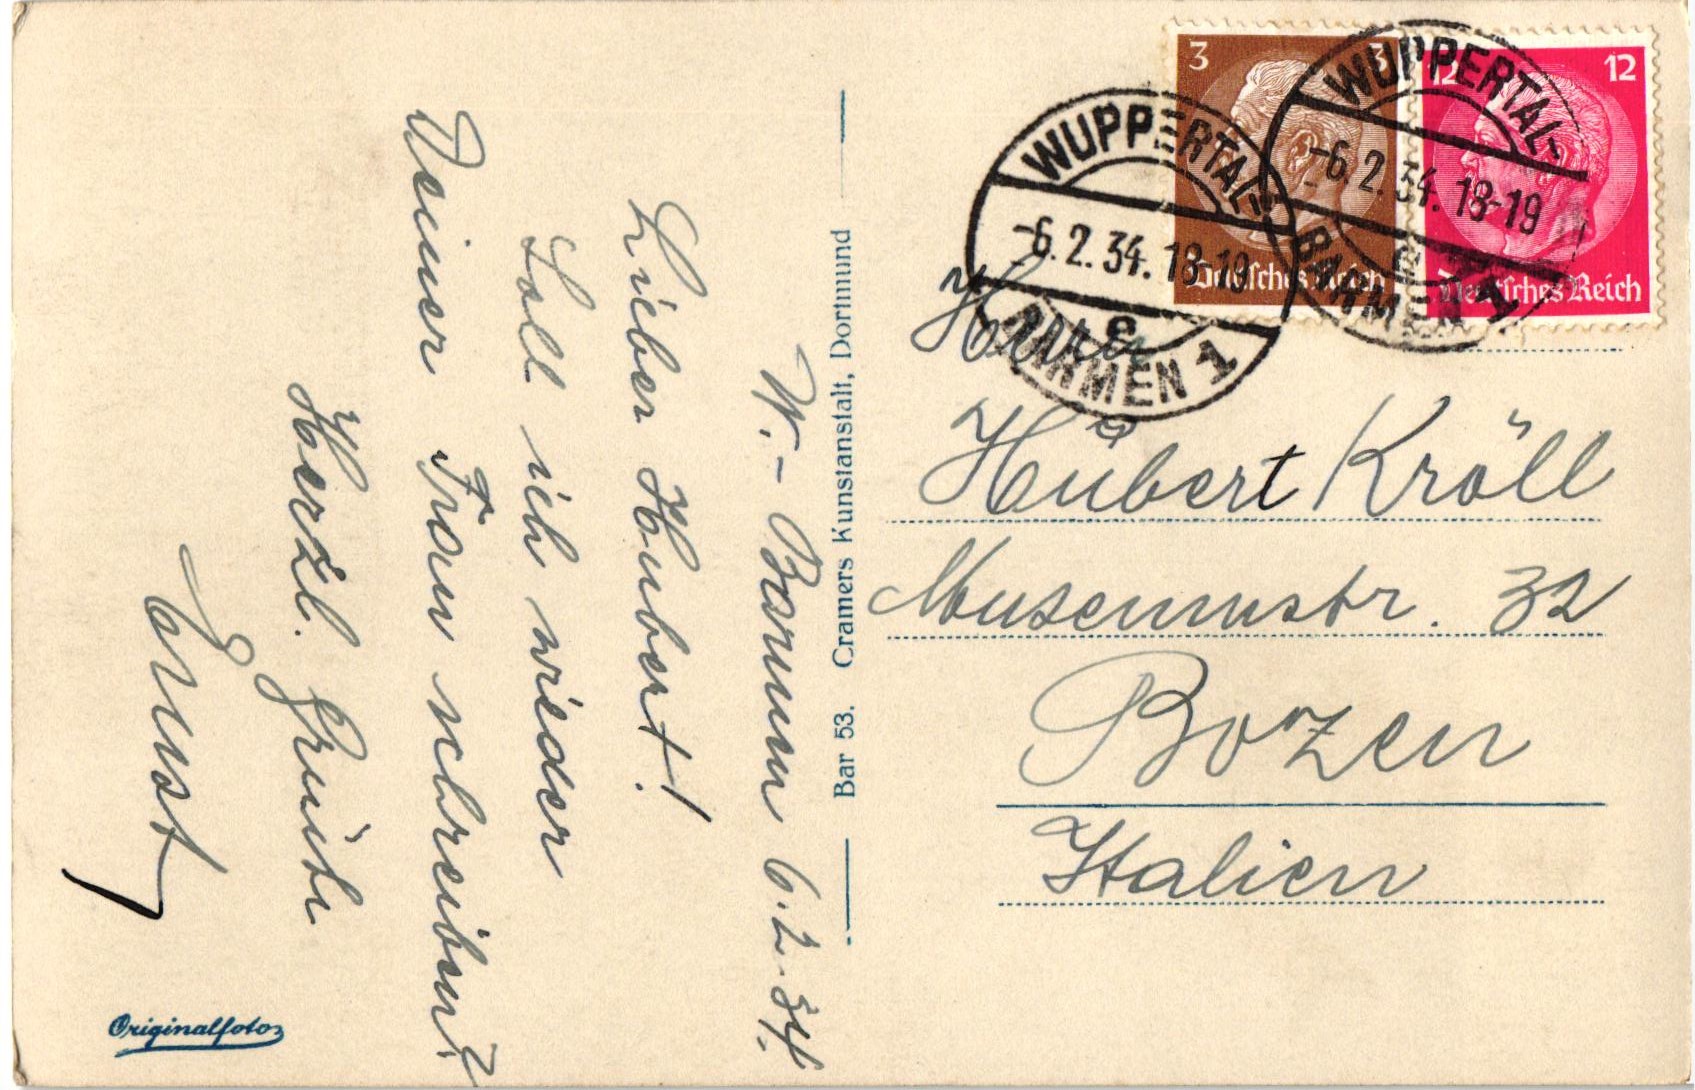 W.- Barmen 6.2.34.
Lieber Hubert!
Soll ich wieder
Deiner Frau schreiben?
Herzl. Grüße
Ernst
Originalfoto
Bar 53. Cramers Kunstanstalt, Dortmund
3 3
Deutsches Reich
12 12
Deutsches Reich
WUPPERTAL-
-6.2.34.18-19
e
BARMEN 1
WUPPERTAL-
-6.2.34.18-19
e
BARMEN 1
Herrn
Hubert Kröll
Museumstr. 32
Bozen
Italien